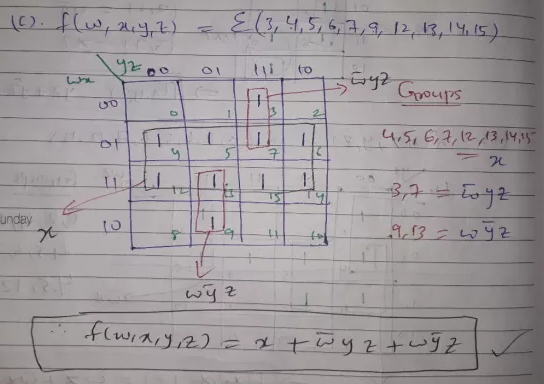 (C). f(w, x, y, z) = Σ(3, 4, 5, 6, 7, 9, 12, 13, 14, 15)
yz 00 01 11 10
wx
w̄yz
00 0 1 1 3 2
Groups
01 1 4 1 5 1 7 1 6
4,5,6,7,12,13,14,15
x
11 1 12 1 13 1 15 1 14
3,7 = w̄yz
unday x
10 8 1 9 11 10
9,13 = wȳz
wȳz
∴ f(w,x,y,z) = x + w̄yz + wȳz ✓